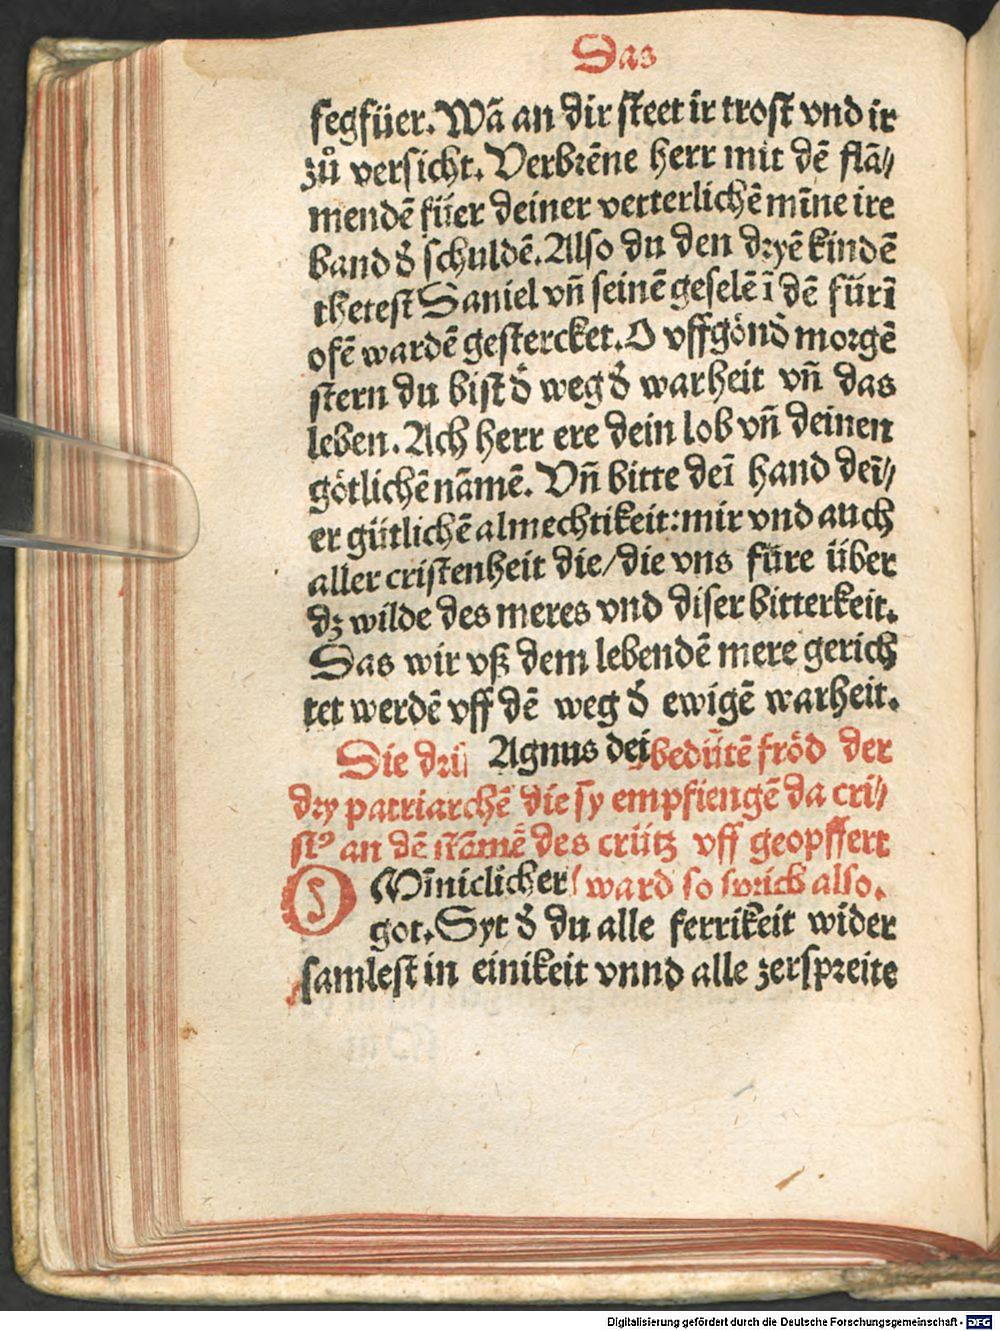 Das
fegfüer. Wā an dir steet ir trost vnd ir
zů versicht. Verbrēne herr mit dē flā⸗
mendē füer deiner vetterlichē mīne ire
band đ schuldē. Also du den dryē kindē
thetest Daniel vñ seinē geselē ī dē fürī
ofē wardē gestercket. O vffgönđ morgē
stern du bist đ weg đ warheit vñ das
leben. Ach herr ere dein lob vñ deinen
götlichē nāmē. Vñ bitte deī hand deī⸗
er gütlichē almechtikeit: mir vnd auch
aller cristenheit die/die vns füre über
dz wilde des meres vnd diser bitterkeit.
Das wir vß dem lebendē mere gerich
tet werdē vff dē weg đ ewigē warheit.
Die drü Agnus dei bedütē fröd der
dry patriarchē die sy empfiengē da cri⸗
stꝰ an dē stāmē des crütz vff geopffert
O Mīniclicher ward so sprich also.
got. Syt đ du alle ferrikeit wider
samlest in einikeit vnnd alle zerspreite
Digitalisierung gefördert durch die Deutsche Forschungsgemeinschaft - DFG